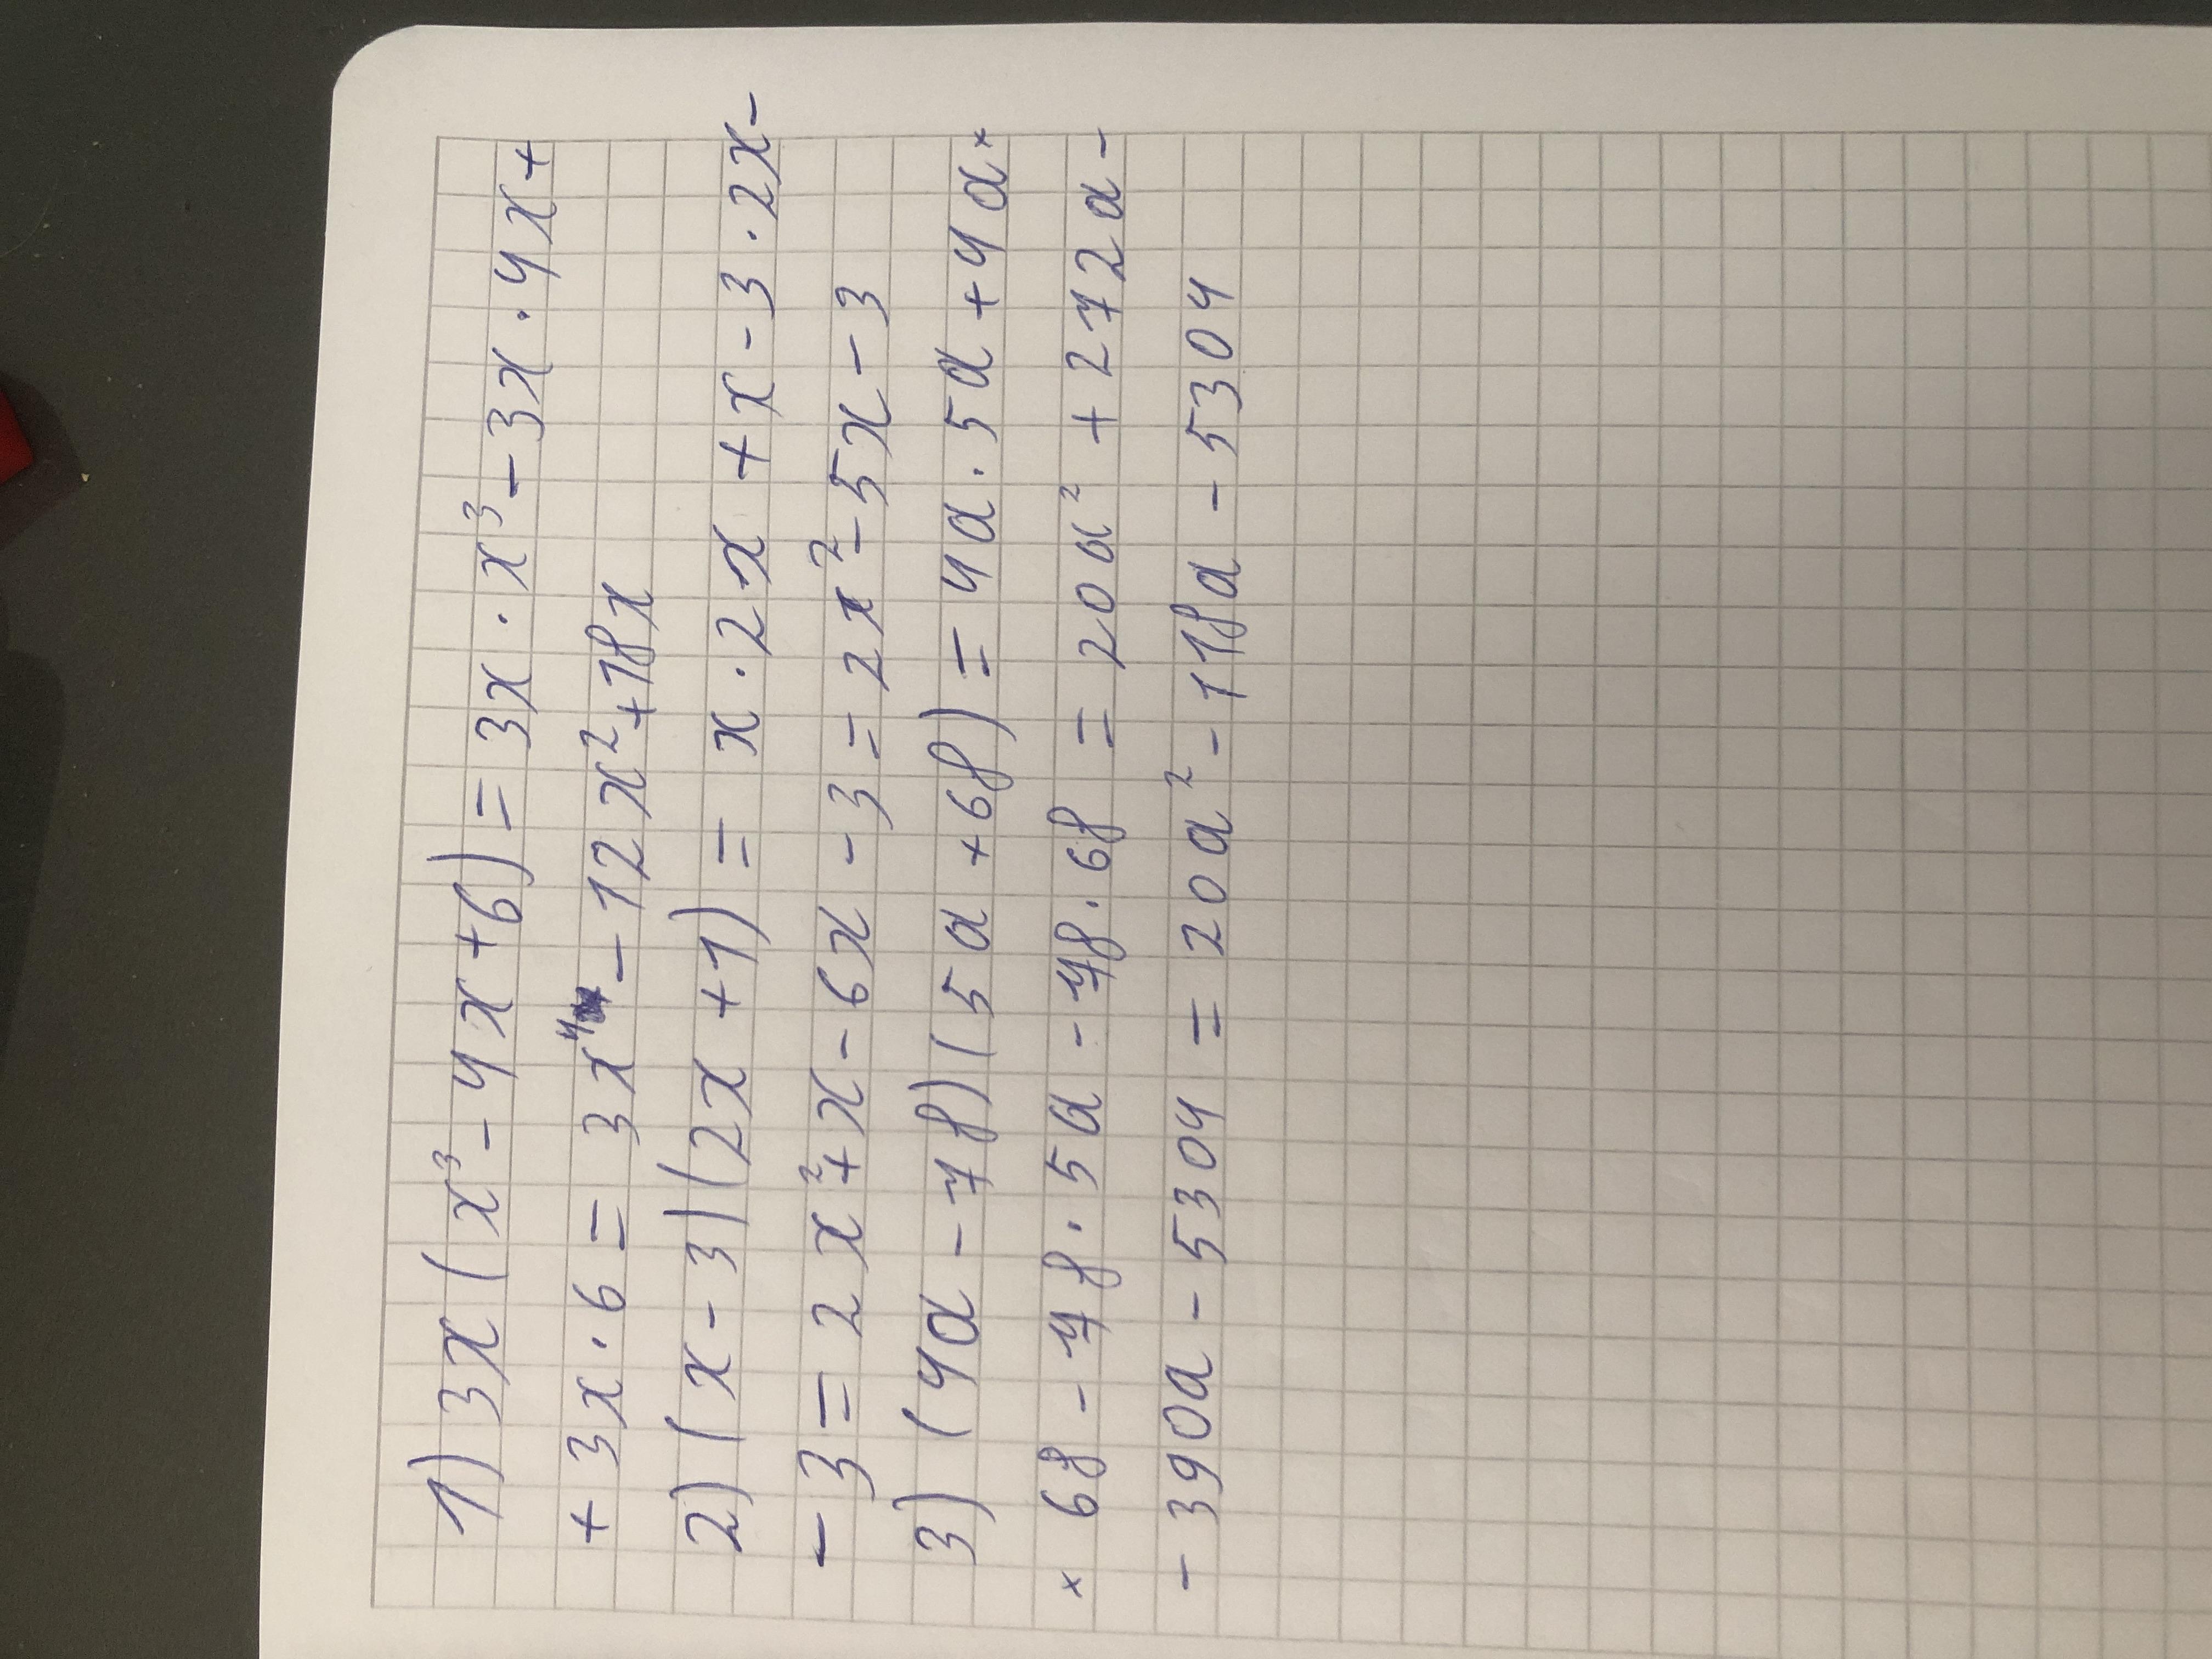 1) 3x(x³-4x+6)=3x·x³-3x·4x+
+3x·6=3x⁴-12x²+18x
2) (x-3)(2x+1)=x·2x+x-3·2x-
-3=2x²+x-6x-3=2x²-5x-3
3) (4a-78)(5a+68)=4a·5a+4a×
×68-78·5a-78·68=20a²+272a-
-390a-5304=20a²-118a-5304